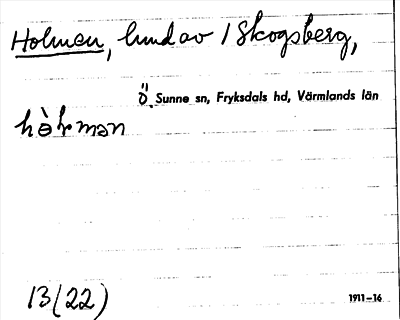 Holmen, hmd av 1 Skogsberg,
Ö. Sunne sn, Fryksdals hd, Värmlands län
hòłmən
13(22)
1911–16